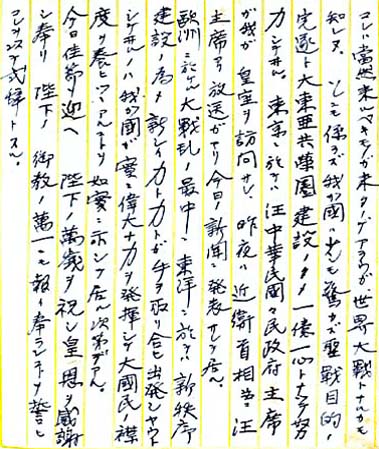 コレハ当然来ルベキモノガ来タノデアラウガ、世界大戦トナルカモ
知レヌ ソレニモ係ラズ我ガ国ハ少シモ驚カズ聖戦目的ノ
完遂ト大東亜共栄圏建設ノタメ一億一心トナッテ努
力シテヰル。東京ニ於テハ汪中華民国々民政府主席
ガ我ガ 皇室ヲ訪問サレ 昨夜ハ近衛首相ト汪
主席ノ放送ガアリ今日ノ新聞ニ発表サレテ居ル。
欧州ニ於ル大戦乱ノ最中ニ東洋ニ於テハ新秩序
建設ノ為メ新シイ力ト力トガ手ヲ取リ合ヒ出発シヤウト
シテヰルノハ我ガ国ガ実ニ偉大ナ力ヲ発揮シテ大国民ノ襟
度ヲ養ヒツヽアルコトヲ如実ニ示シテ居ル次第デアル。
今日佳節ヲ迎ヘ 陛下ノ万歳ヲ祝シ皇恩ヲ感謝
シ奉リ 陛下ノ 御教ノ萬一ニモ報イ奉ランコトヲ誓ヒ
コレヲ以テ式辞トスル。